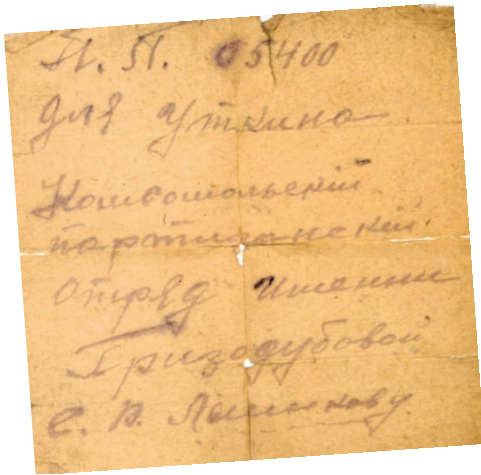 П. П. 05400
для Уткина
Комсомольский
партизанский
отряд имени
Гризодубовой
С. В.